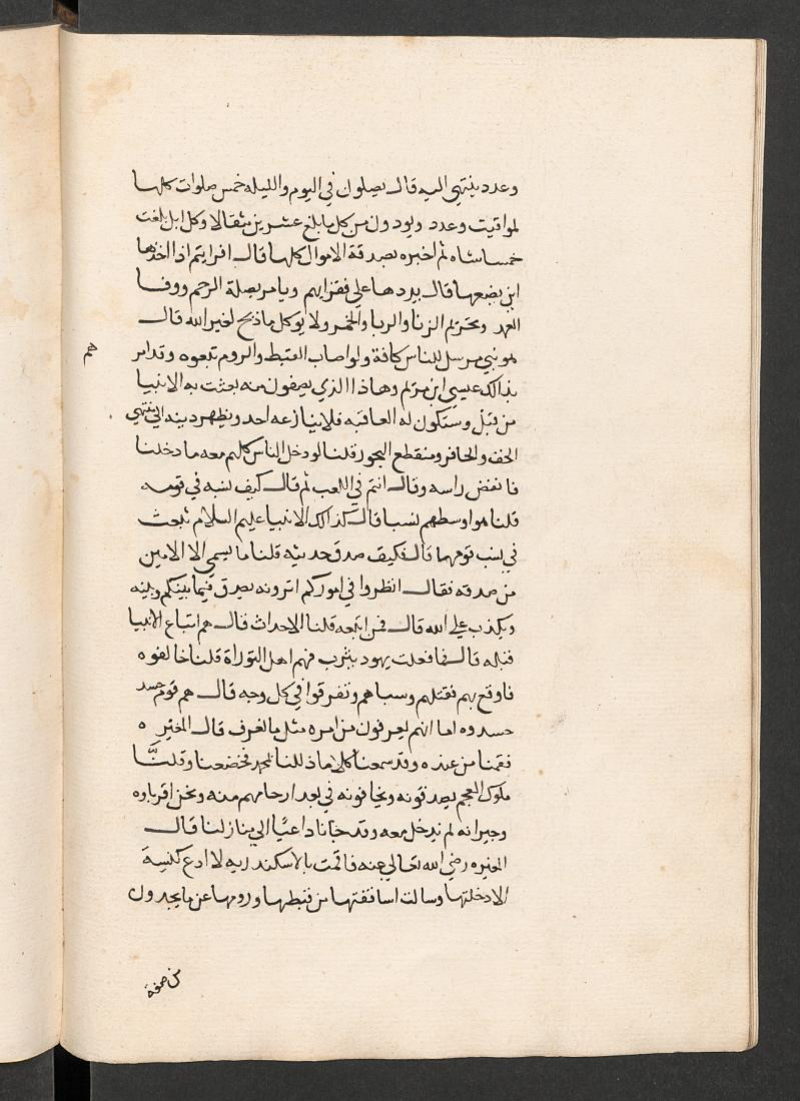 وعدد ينتهي اليه قال يصلون في اليوم والليله خمس صلوات كلها
لمواقيت وعدد ويودون من كل ما بلغ عشرين مثقالا وكل ابل بلغت
خمسا شاه ثم اخبره بصدقة الاموال كلها قال افرايتم اذا اخذها
اين يضعها قال يردها علي فقرايهم ويامر بصلة الرحم ووفا
العهد وتحريم الزنا والربا والخمر ولا يوكل ما ذبح لغير الله قال
هو نبي مرسل للناس كافة ولو اصاب القبط والروم تبعوه وقد امر
هم
بذالك عيسي ابن مريم وهاذا الذي يصفون منه بعثت به الانبيا
من قبل وستكون له العاقبه فلا ينازعه احد ويظهر دينه الي منتهي
الخف والحافر ومنقطع البحور قلنا لو دخل الناس كلهم معه ما دخلنا
فانغض راسه وقال انتم في اللعب ثم قال كيف نسبه في قومه
قلنا هو اوسطهم نسبا قال كذالك الانبيا عليهم السلام تبعث
في نسب قومها قال فكيف صدق حديثه قلنا ما يسمي الا الامين
من صدقه فقال انظروا في اموركم اترونه يصدق فيما بينكم وبينه
ويكذب علي الله قال فمن اتبعه قلنا الاحداث قال هم اتباع الانبيا
قبله قال فما فعلت يهود يثرب فهم اهل التوراة قلنا خالفوه
فاوقع بهم فقتلهم وسباهم وتفرقوا في كل وجه قال هم قوم حسد
حسدوه اما انهم يعرفون من امره مثل ما نعرف قال المغيره
فقمنا من عنده وقد سمعنا كلاما ذللنا لمحمد فخضعنا وقلنا
ملوك العجم يصدقونه ويخافونه في بعد ارحامهم منه ونحن اقرباوه
وجيرانه لم ندخل معه وقد جانا داعيا الي منازلنا قال
المغيره رضي الله تعالي عنه فاقمت بالاسكندريه لا ادع كنيسة
الا دخلتها وسالت اساقفتها من قبطها ورومها عن ما يجدون
من صفة